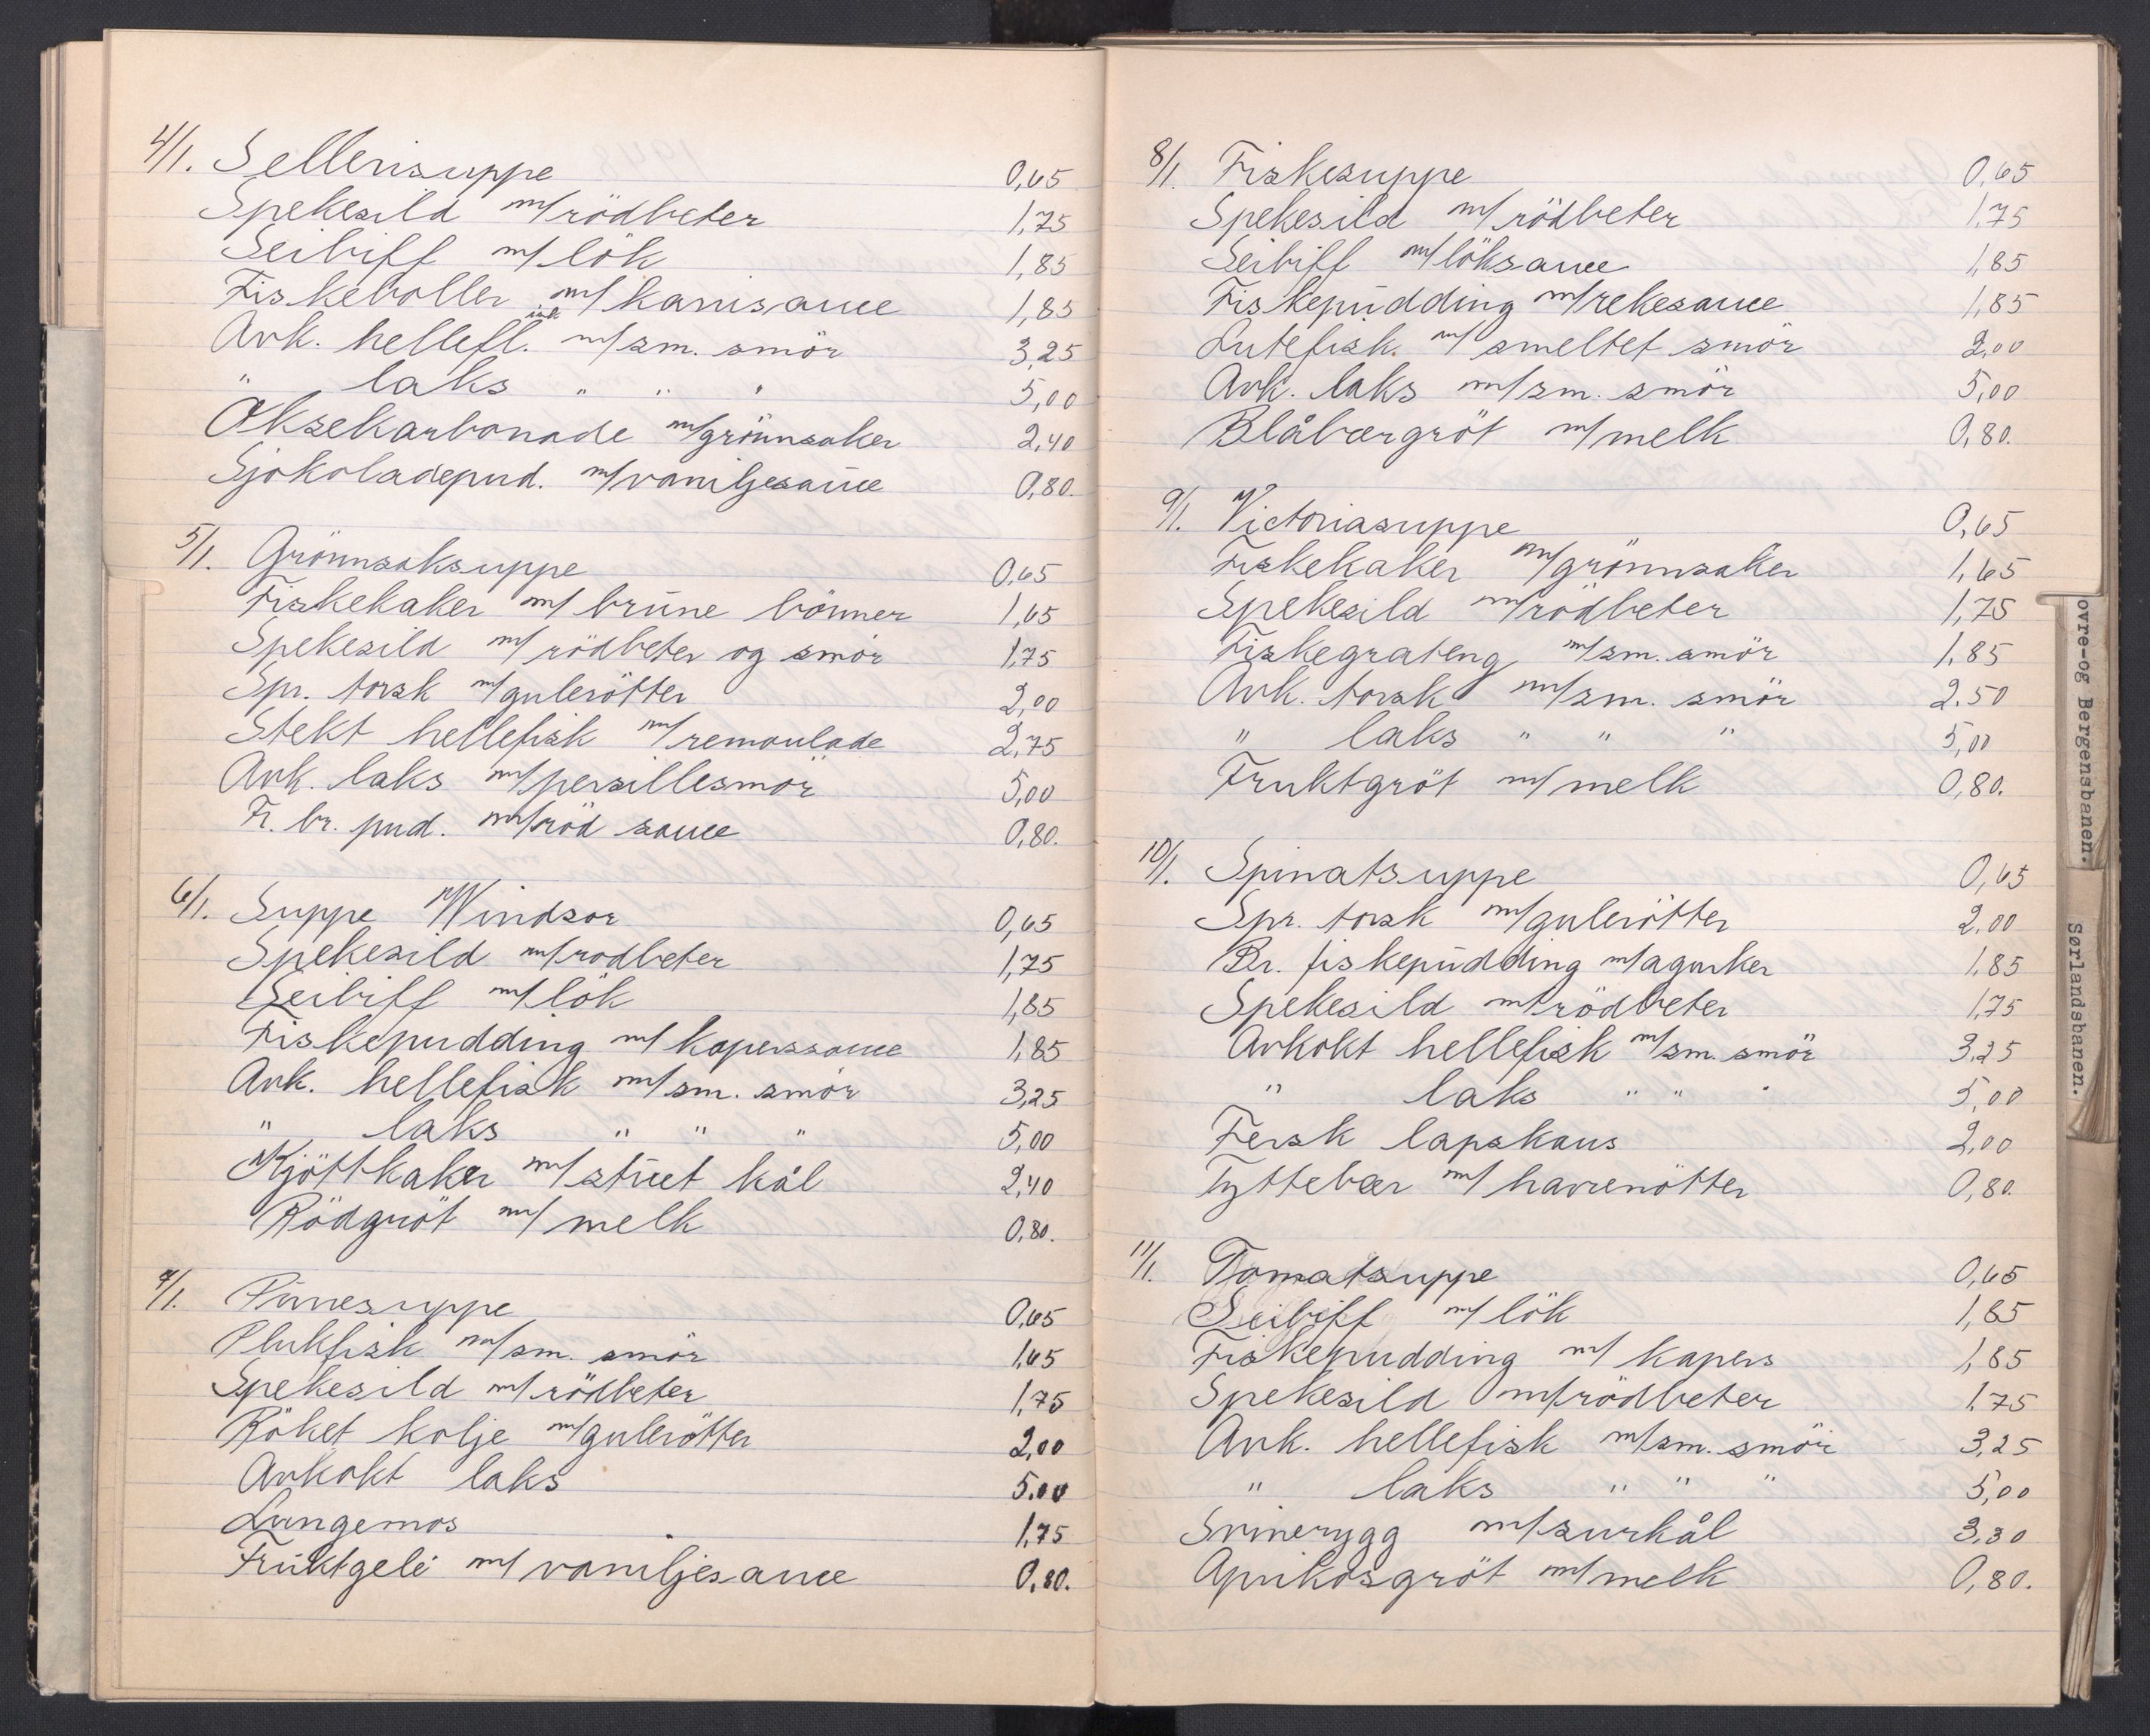 4/1. Sellerisuppe 0,65
Spekesild m/rödbeter 1,75
Seibiff m/lök 1,85
Fiskeboller m/karrisauce 1,85
Avk. hellefl. m/sm. smör 3,25
" laks " " " 5,00
Oksekarbonade m/grönnsaker 2,40
Sjokoladepud. m/vaniljesauce 0,80.
5/1. Grönnsaksuppe 0,65
Fiskekaker m/ brune bönner 1,65
Spekesild m/ rödbeter og smör 1,75
Spr. torsk m/gulerötter 2,00
Stekt hellefisk m/remoulade 2,75
Avk. laks m/persillesmör 5,00
Fr. br. pud. m/röd sauce 0,80.
6/1. Suppe Windsor 0,65
Spekesild m/rödbeter 1,75
Seibiff m/lök 1,85
Fiskepudding m/ kaperssauce 1,85
Avk. hellefisk m/sm. smör 3,25
" laks " " " 5,00
Kjöttkaker m/stuet kål 2,40
Rödgröt m/ melk 0,80.
7/1. Püresuppe 0,65
Plukfisk m/sm. smör 1,65
Spekesild m/rödbeter 1,75
Röket kolje m/gulerötter 2,00
Avkokt laks 5.00
Lungemos 1,75
Fruktgelé m/ vaniljesauce 0,80.
8/1. Fiskesuppe 0,65
Spekesild m/ rödbeter 1,75
Seibiff m/löksauce 1,85
Fiskepudding m/rekesauce 1,85
Lutefisk. m/ smeltet smör 2,00
Avk. laks m/sm. smör 5,00
Blåbærgröt m/melk 0,80.
9/1. Victoriasuppe 0,65
Fiskekaker m/grönnsaker 1,65
Spekesild m/rödbeter 1,75
Fiskegrateng m/sm. smör 1.85
Avk. torsk m/sm. smör 2.50
" laks " " " 5,00
Fruktgröt m/ melk 0,80.
10/1. Spinatsuppe 0,65
Spr. torsk m/gulerötter 2,00
Br. fiskepudding m/agurker 1,85
Spekesild m/rödbeter 1,75
Avkokt hellefisk m/sm. smör 3,25
" laks " " " 5,00
Fersk lapskaus 2,00
Tyttebær m/ havrenötter 0,80.
11/1. Tomatsuppe 0,65
Seibiff m/ lök 1,85
Fiskepudding m/ kapers 1,85
Spekesild m/rödbeter 1.75
Avk. hellefisk m/sm. smör 3,25
" laks " " " 5,00
Svinerygg m/surkål 3.30
Aprikosgröt m/melk 0,80.
ovre-og Bergensbanen.
Sørlandsbanen.